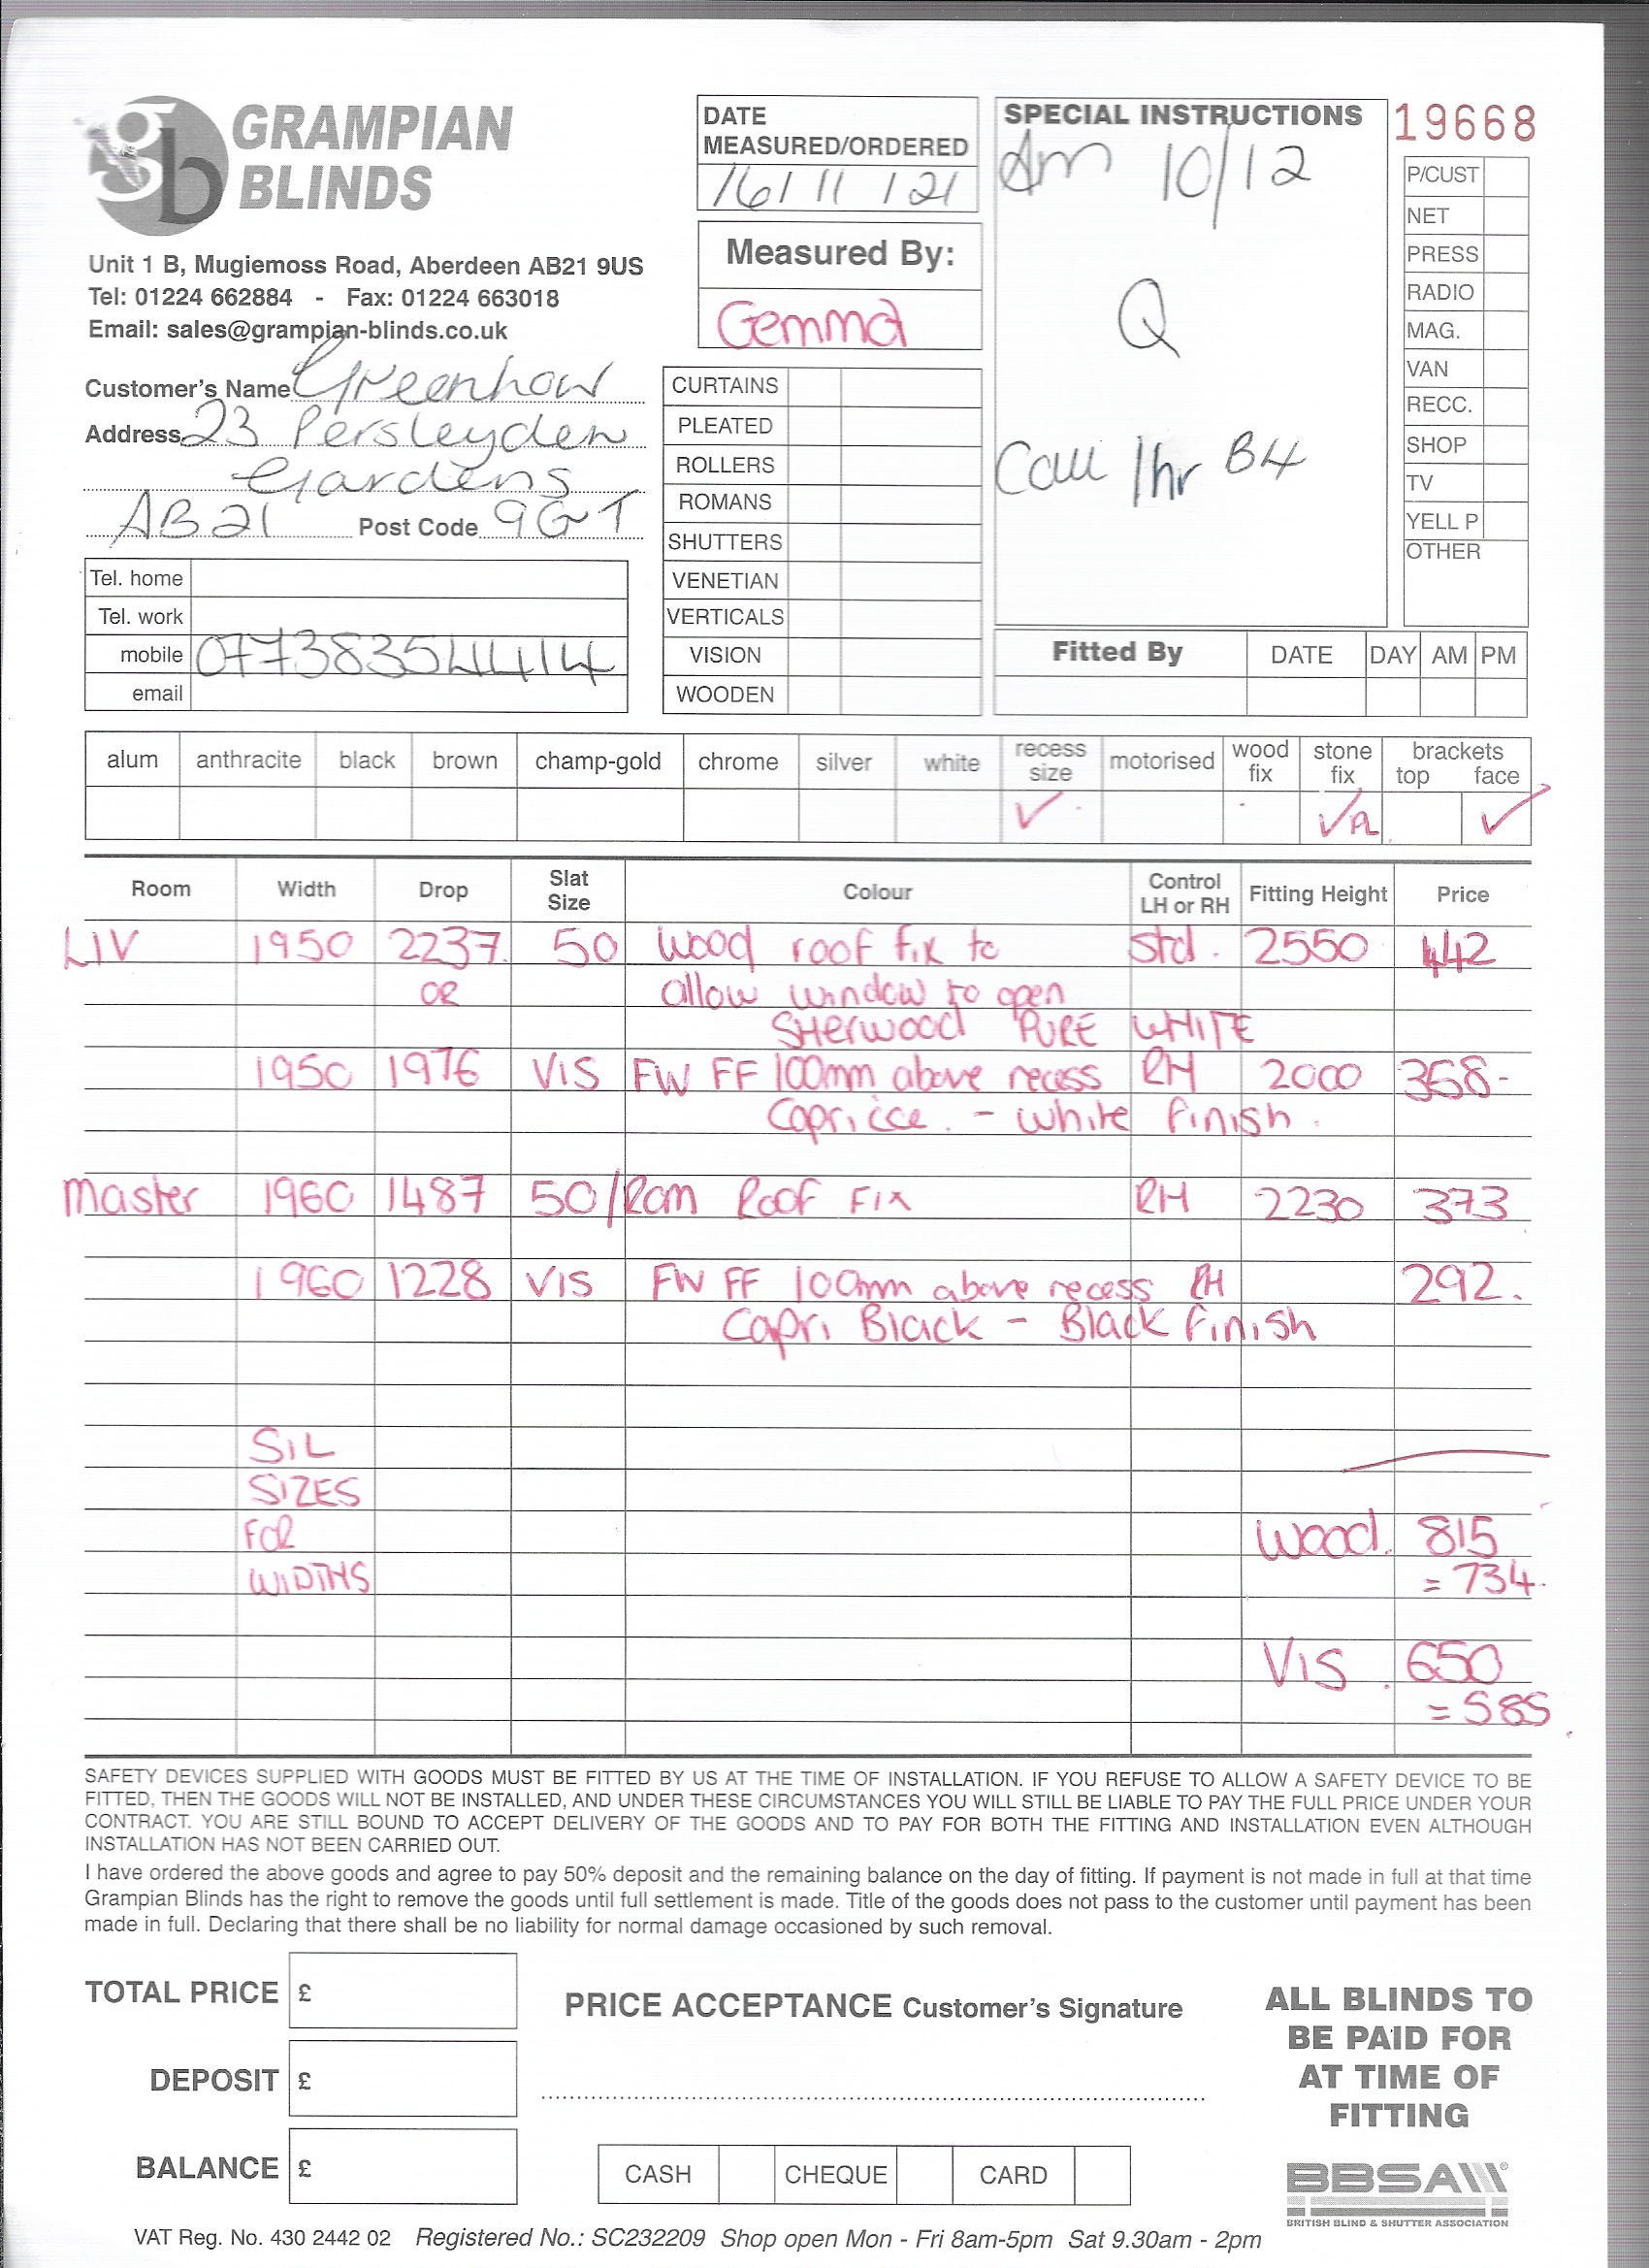 GRAMPIAN
BLINDS
Unit 1 B, Mugiemoss Road, Aberdeen AB21 9US
Tel: 01224 662884 - Fax: 01224 663018
Email: sales@grampian-blinds.co.uk
Customer's Name Greenhow
Address 23 Persleyden
Gardens
AB21 Post Code 9GT
Tel. home
Tel. work
mobile 07738354414
email
DATE
MEASURED/ORDERED
16/11/21
Measured By:
Gemma
CURTAINS
PLEATED
ROLLERS
ROMANS
SHUTTERS
VENETIAN
VERTICALS
VISION
WOODEN
SPECIAL INSTRUCTIONS
Am 10/12
Q
Call 1hr B4
19668
P/CUST
NET
PRESS
RADIO
MAG.
VAN
RECC.
SHOP
TV
YELL P
OTHER
Fitted By DATE DAY AM PM
alum anthracite black brown champ-gold chrome silver white recess size motorised wood fix stone fix brackets top face
Room Width Drop Slat Size Colour Control LH or RH Fitting Height Price
LIV 1950 2237 50 wood roof fix to std. 2550 442
OR allow window to open
SHerwood PURE WHITE
1950 1976 VIS FW FF 100mm above recess RH 2000 358-
Capricce. - white finish.
Master 1960 1487 50/Ram Roof Fix RH 2230 373
1960 1228 VIS FW FF 100mm above recess RH 292.
Capri Black - Black finish
SIL
SIZES
FOR wood. 815
WIDTHS = 734.
VIS. 650
= 585
SAFETY DEVICES SUPPLIED WITH GOODS MUST BE FITTED BY US AT THE TIME OF INSTALLATION. IF YOU REFUSE TO ALLOW A SAFETY DEVICE TO BE
FITTED, THEN THE GOODS WILL NOT BE INSTALLED, AND UNDER THESE CIRCUMSTANCES YOU WILL STILL BE LIABLE TO PAY THE FULL PRICE UNDER YOUR
CONTRACT. YOU ARE STILL BOUND TO ACCEPT DELIVERY OF THE GOODS AND TO PAY FOR BOTH THE FITTING AND INSTALLATION EVEN ALTHOUGH
INSTALLATION HAS NOT BEEN CARRIED OUT.
I have ordered the above goods and agree to pay 50% deposit and the remaining balance on the day of fitting. If payment is not made in full at that time
Grampian Blinds has the right to remove the goods until full settlement is made. Title of the goods does not pass to the customer until payment has been
made in full. Declaring that there shall be no liability for normal damage occasioned by such removal.
TOTAL PRICE £
DEPOSIT £
BALANCE £
PRICE ACCEPTANCE Customer's Signature
CASH CHEQUE CARD
ALL BLINDS TO
BE PAID FOR
AT TIME OF
FITTING
BBSA
BRITISH BLIND & SHUTTER ASSOCIATION
VAT Reg. No. 430 2442 02 Registered No.: SC232209 Shop open Mon - Fri 8am-5pm Sat 9.30am - 2pm